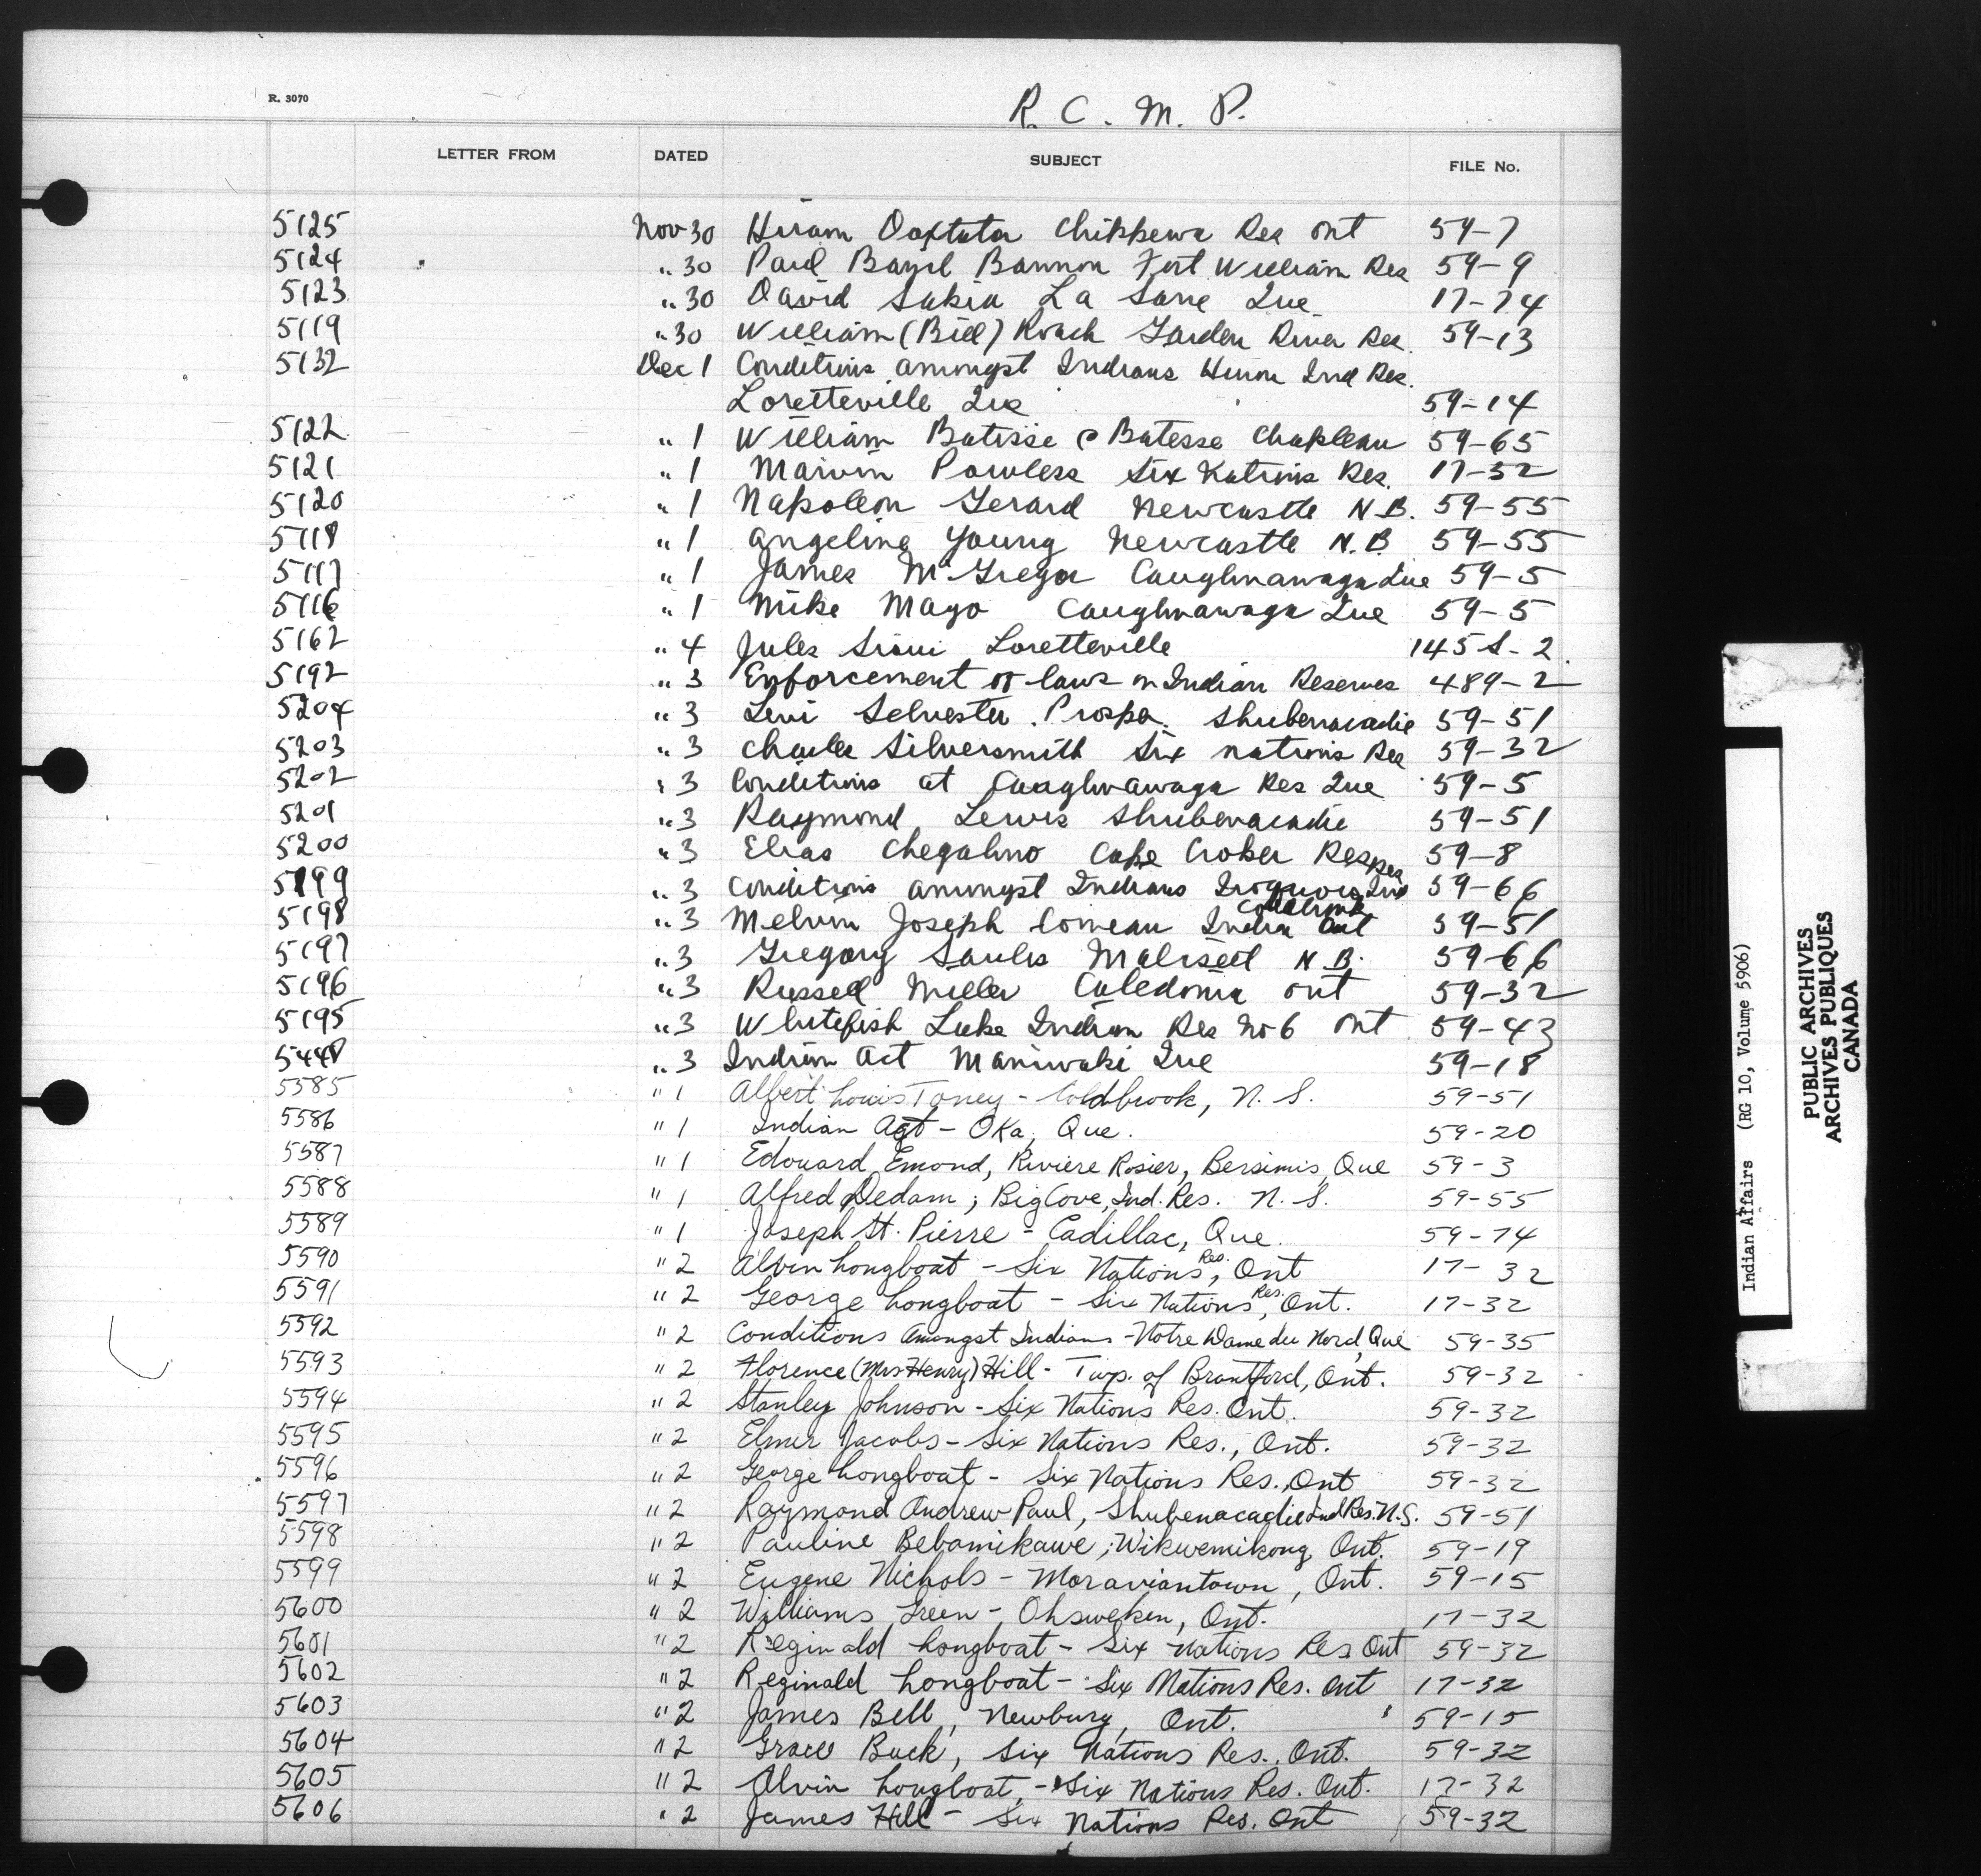 R. 3070
R. C. M. P.
LETTER FROM DATED SUBJECT FILE No.
5125 Nov 30 Hiram Doxtator Chippewa Res Ont 59-7
5124 " 30 Paul Bazil Bannon Fort William Res 59-9
5123 " 30 David La Sarre Que 17-74
5119 " 30 William (Bill) Roach Garden River Res. 59-13
5132 Dec 1 Conditions amongst Indians Huron Ind Res.
Loretteville Que 59-14
5122 " 1 William Batisse Batesse Chapleau 59-65
5121 " 1 Marvin Powless Six Nations Res. 17-32
5120 " 1 Napoleon Gerard Newcastle N.B. 59-55
5118 " 1 Angeline Young Newcastle N.B. 59-55
5117 " 1 James McGregor Caughnawaga Que 59-5
5116 " 1 Mike Mayo Caughnawaga Que 59-5
5162 " 4 Jules Sioui Loretteville 145 S-2
5192 " 3 Enforcement of laws on Indian Reserves 489-2
5204 " 3 Levi Selvester Prosper. Shubenacadie 59-51
5203 " 3 Charles Silversmith Six nations Res 59-32
5202 " 3 Conditions at Caughnawaga Res Que 59-5
5201 " 3 Raymond Lewis Shubenacadie 59-51
5200 " 3 Elias Chegahno Cape Croker Res 59-8
5199 " 3 Conditions amongst Indians Iroquois Ind Res 59-66
5198 " 3 Melvin Joseph Comeau Indian Coldbrook 59-51
5197 " 3 Gregory Saulis Maliseet N.B. 59-66
5196 " 3 Russell Miller Caledonia Ont 59-32
5195 " 3 Whitefish Lake Indian Res No 6 Ont 59-43
5448 " 3 Indian Act Maniwaki Que 59-18
5585 " 1 Albert Louis Toney - Coldbrook, N.S. 59-51
5586 " 1 Indian Act - Oka, Que. 59-20
5587 " 1 Edouard Emond, Riviere Rosier, Bersimis, Que 59-3
5588 " 1 Alfred Dedam; Big Cove, Ind. Res. N.S. 59-55
5589 " 1 Joseph St. Pierre - Cadillac, Que. 59-74
5590 " 2 Alvin Longboat - Six Nations Res., Ont 17-32
5591 " 2 George Longboat - Six Nations Res., Ont. 17-32
5592 " 2 Conditions Amongst Indians - Notre Dame du Nord, Que 59-35
5593 " 2 Florence (Mrs Henry) Hill - Twp. of Brantford, Ont. 59-32
5594 " 2 Stanley Johnson - Six Nations Res. Ont. 59-32
5595 " 2 Elmer Jacobs - Six Nations Res., Ont. 59-32
5596 " 2 George Longboat - Six Nations Res., Ont 59-32
5597 " 2 Raymond Andrew Paul, Shubenacadie Ind Res. N.S. 59-51
5598 " 2 Pauline Bebamikawe; Wikwemikong, Ont. 59-19
5599 " 2 Eugene Nichols - Moraviantown, Ont. 59-15
5600 " 2 Williams Green - Ohsweken, Ont. 17-32
5601 " 2 Reginald Longboat - Six Nations Res Ont 59-32
5602 " 2 Reginald Longboat - Six Nations Res. Ont 17-32
5603 " 2 James Bell, Newbury, Ont. 59-15
5604 " 2 Grace Buck, Six Nations Res., Ont. 59-32
5605 " 2 Alvin Longboat, - Six Nations Res. Ont. 17-32
5606 " 2 James Hill - Six Nations Res. Ont 59-32
Indian Affairs (RG 10, Volume 5906)
PUBLIC ARCHIVES
ARCHIVES PUBLIQUES
CANADA